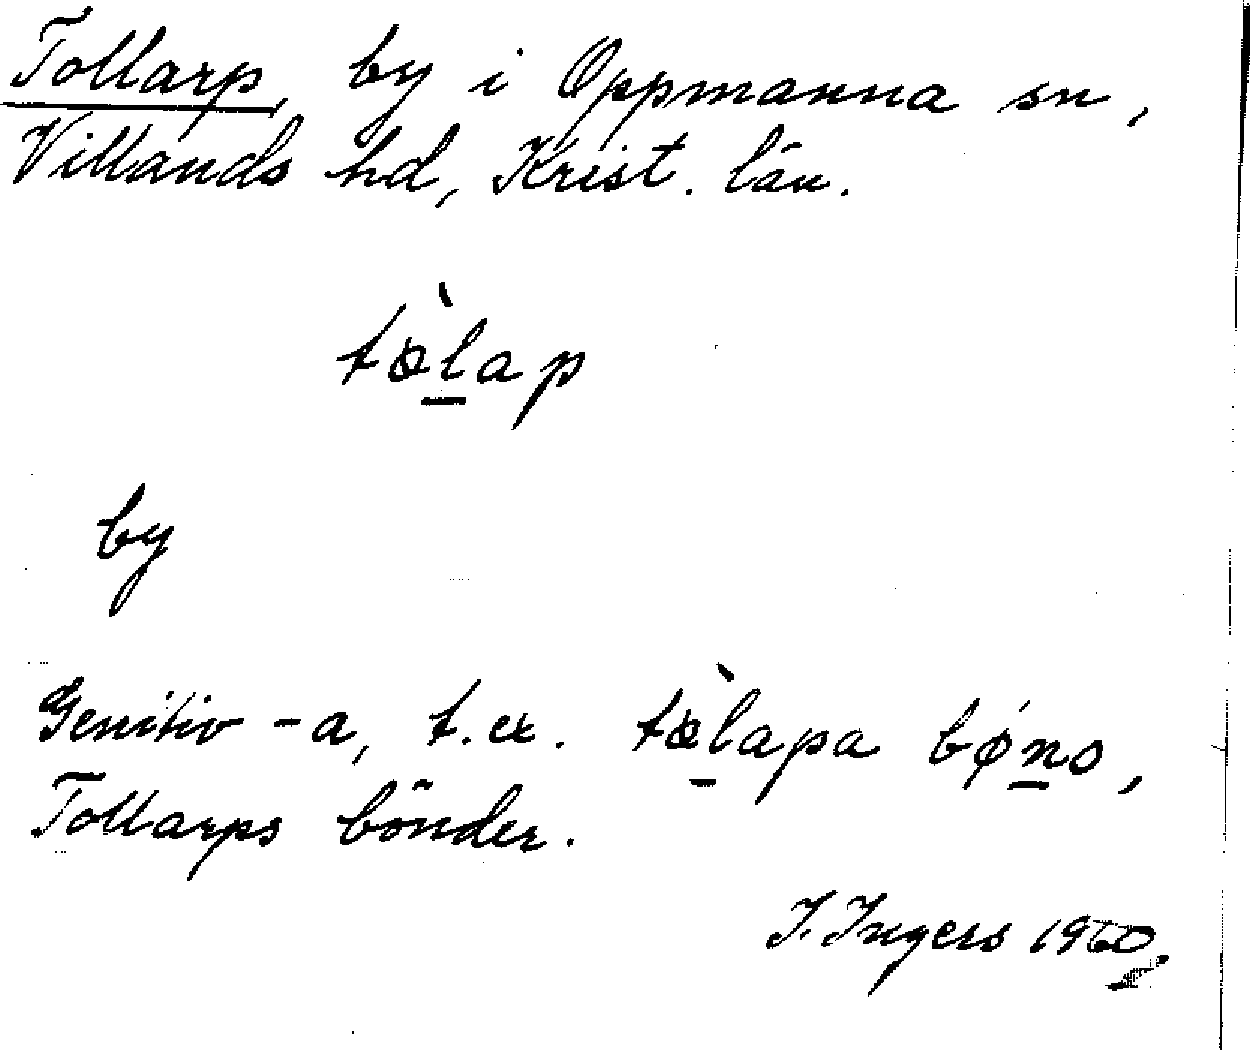 Tollarp, by i Oppmanna sn,
Villands hd, Krist. län.
tɷ̀l̠ap
by
Genitiv -a, t.ex. tɷ̀l̠apa bǿn̠o,
Tollarps bönder.
I. Ingers 1960.